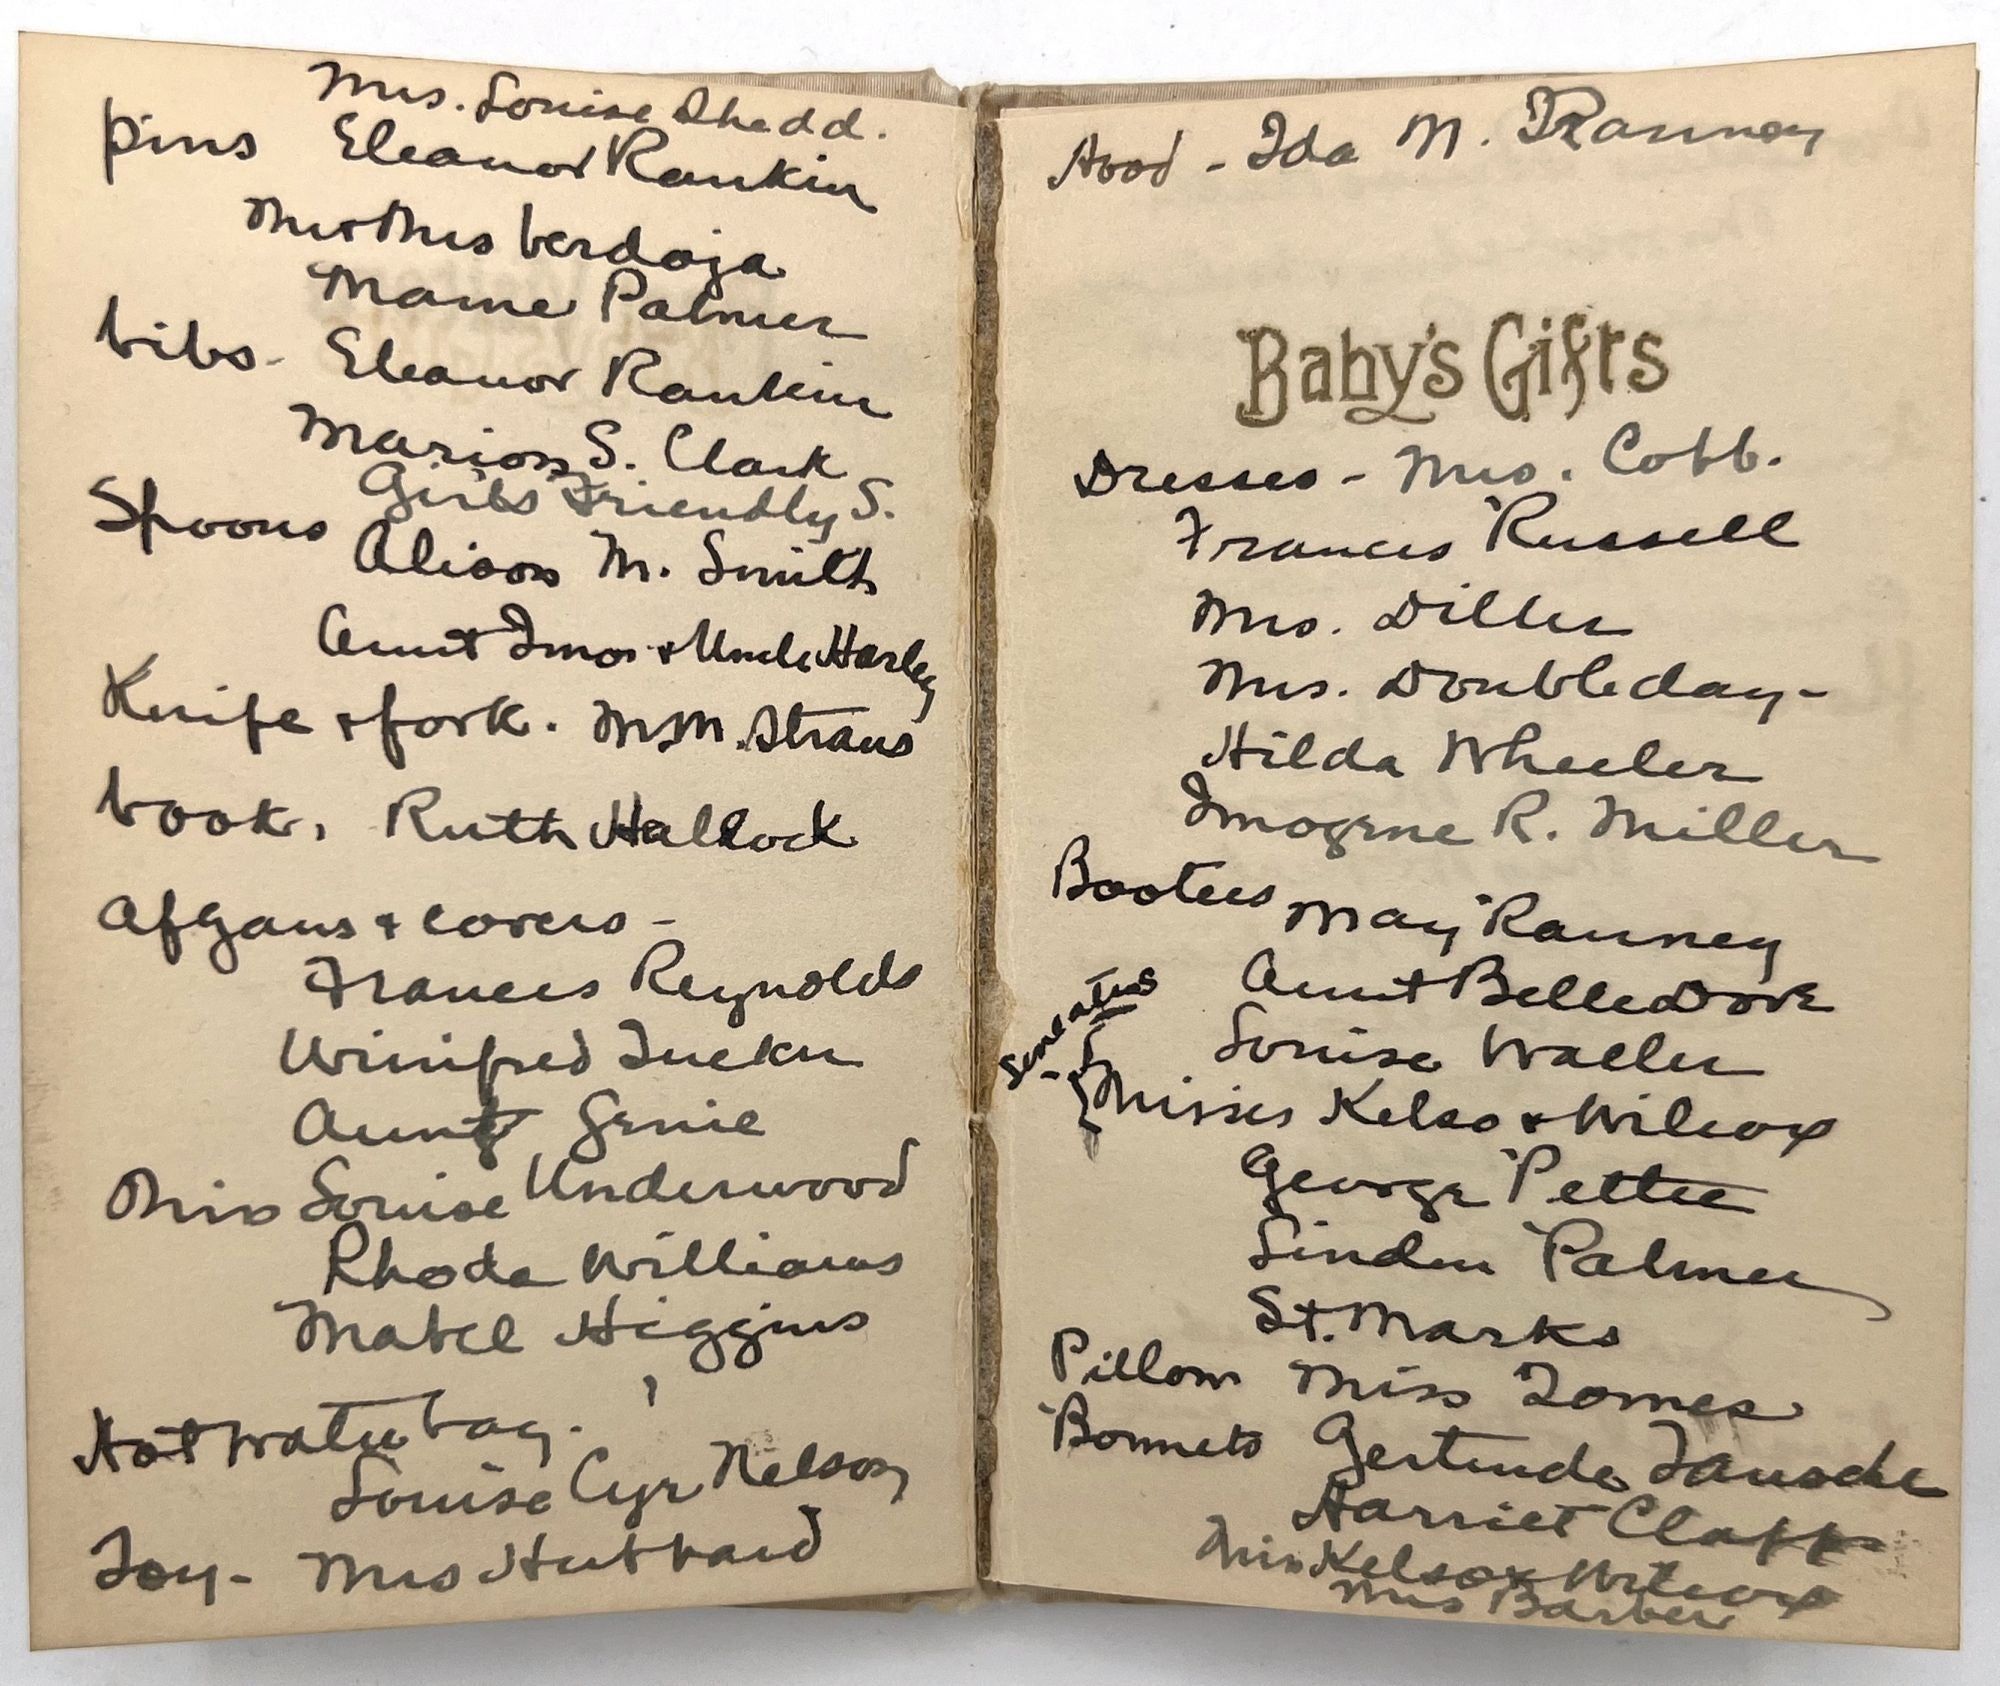 Mrs. Louise Shedd.
pins Eleanor Rankin
Mr & Mrs Verdoja
Mame Palmer
bibs - Eleanor Rankin
Marion S. Clark
Girls Friendly S.
Spoons Alison M. Smith
Aunt Imo & Uncle Harley
Knife & fork. M.M. Straus
book. Ruth Hallock
Afgans & covers -
Frances Reynolds
Winifred Tucker
Aunt Genie
Miss Louise Underwood
Rhoda Williams
Mabel Higgins
Hot water bag.
Louise Cyr Nelson
Toy - Mrs Hubbard
Hood - Ida M. Ranney
Baby's Gifts
Dresses - Mrs. Cobb.
Frances Russell
Mrs. Diller
Mrs. Doubleday -
Hilda Wheeler
Imogene R. Miller
Bootees May Ranney
Aunt Belle Dove
Louise Waller
Misses Kelso & Wilcox
George Pettee
Linden Palmer
St. Marks
Pillow Miss Tomes
Bonnets Gertrude
Harriet Clapp
Miss Kelso & Wilcox
Mrs Barber